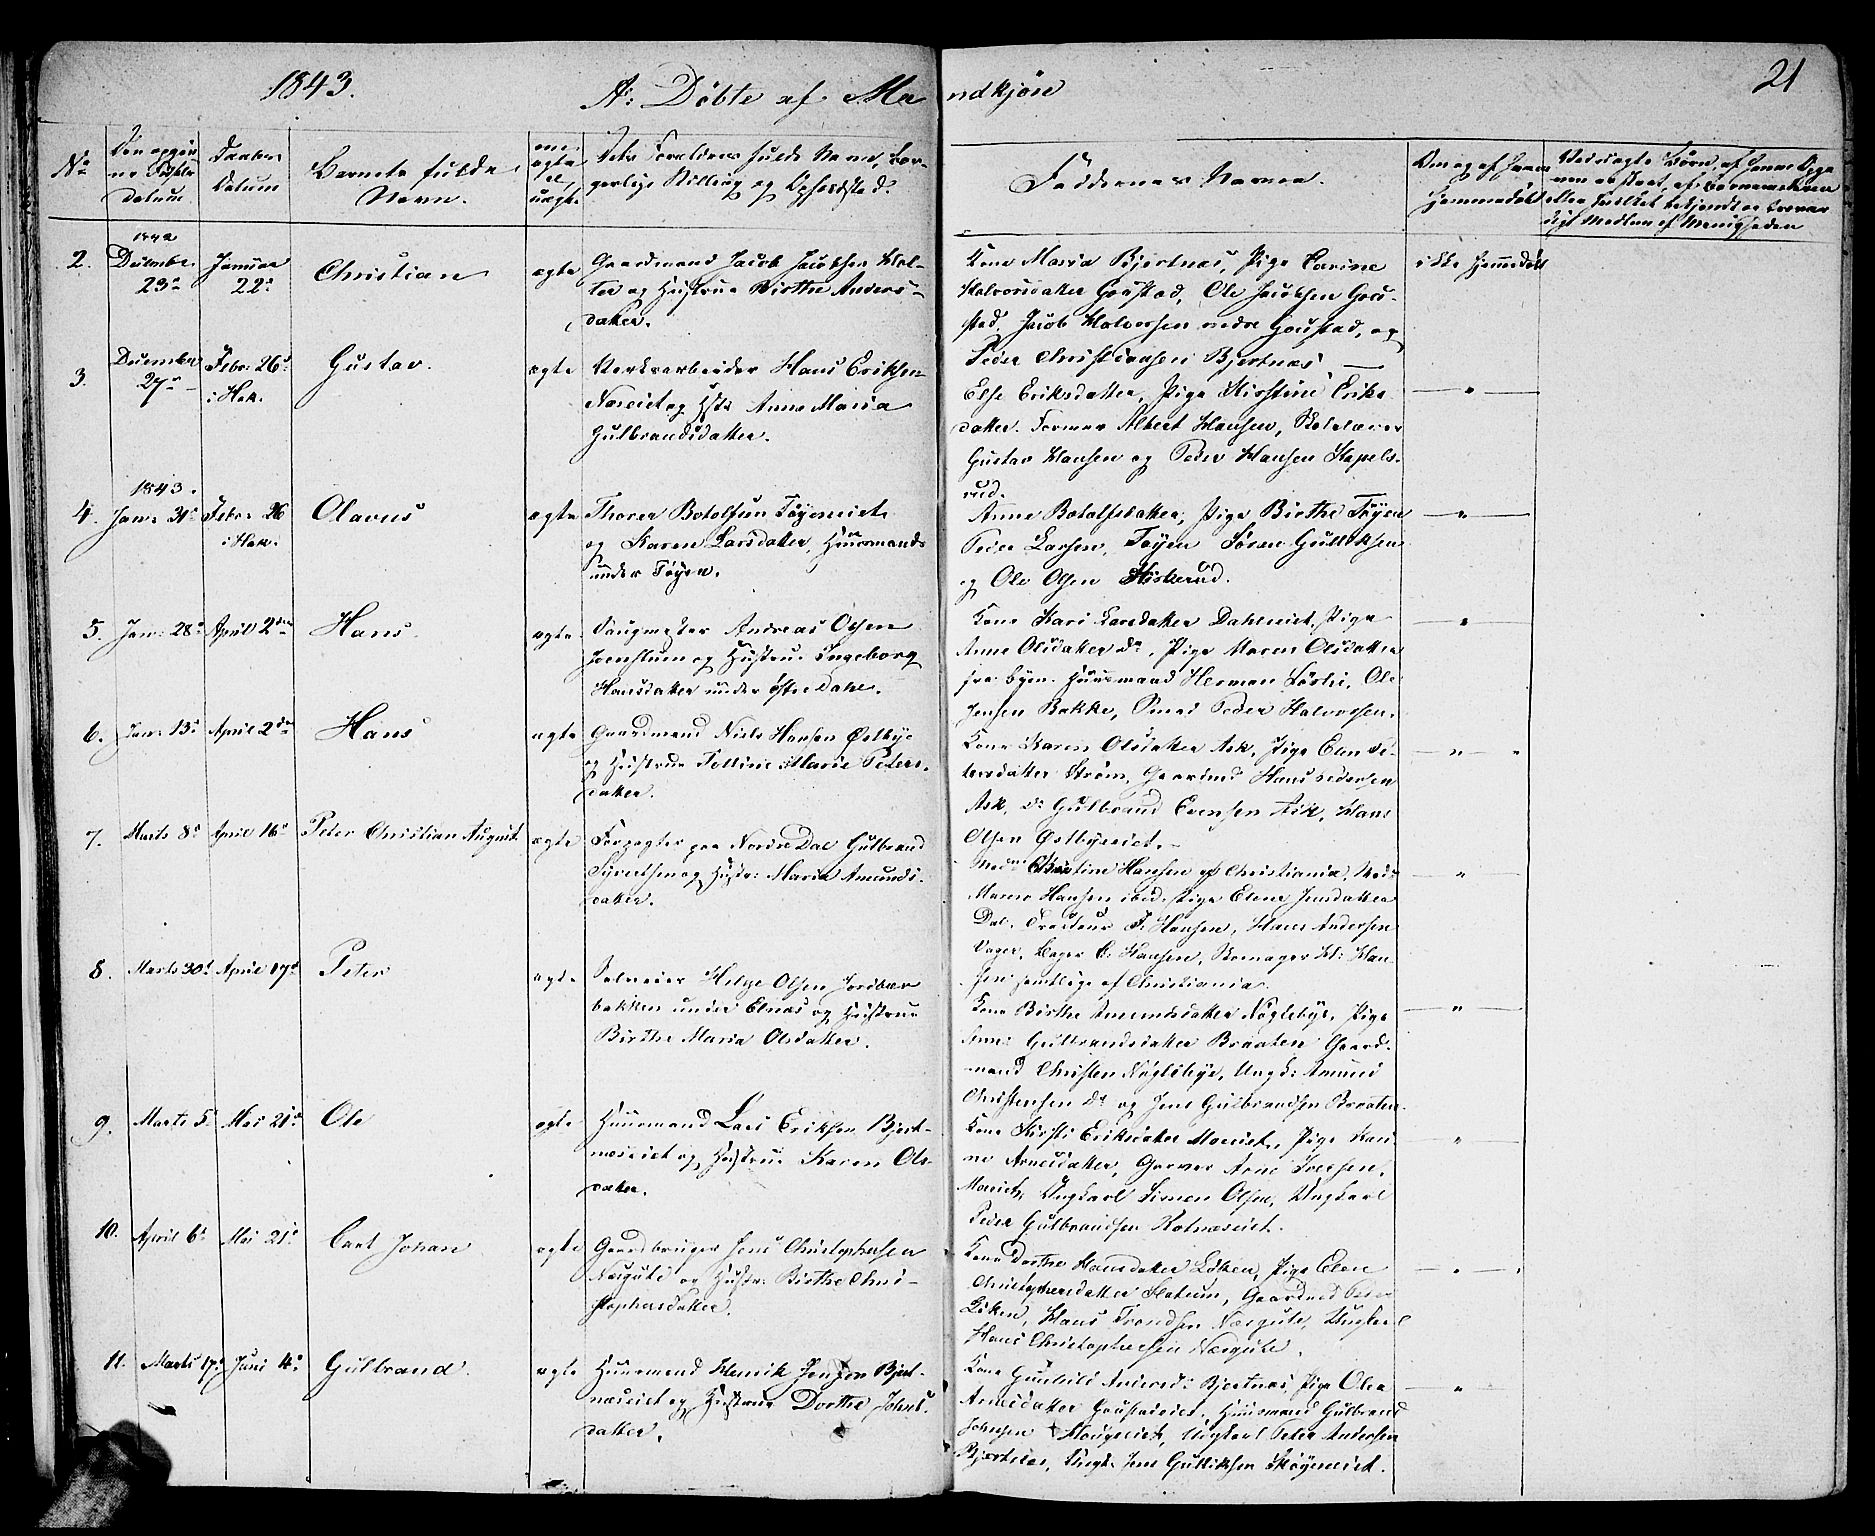 1843.
A: Døbte af Mandkjøn
21
No
Den opgivne Fødselsdatum
Daabens Datum
Barnets fulde Navn.
om ægte el. uægte
Dets Forældres fulde Navne, Borgerlige Stilling og Opholdsted.
Faddernes Navne.
Hjemmedøbt
2.
1842
December 23de
Januar 22de
Christian
ægte
Gaardmand Jacob Jacobsen
og Hustrue Birthe Anders-
datter.
Kone Maria Bjertnæs, Pige Karine
Halvorsdatter Goustad, Ole Jacobsen Gou-
stad, Jacob Halvorsen nedre Goustad, og
Peder Christiansen Bjertnæs
ikke Hjemmedøbt
3.
December 27de
Febr: 26de
i Hak.
Gustav.
ægte
Verksarbeider Hans Eriksen
Næseiet og Hstr Anne Maria
Gulbrandsdatter.
Else Eriksdatter, Pige Kirstine Eriks-
datter. Former Albert Hansen, Skolelærer
Gustav Hansen og Peder Hansen Hapels-
rud.
— " —
4.
1843.
Jan: 31te
Febr: 26
i Hak.
Olavus
ægte
Thorer Botolfsen Tøyeneiet
og Karen Larsdatter, Huusmand
under Tøyen.
Anne Botolfsdatter, Pige Birthe Tøyen
Peder Larsen, Tøyen Søren Gulliksen
og Ole Olsen
— " —
5.
Jan: 28de
April 2den
Hans
ægte
Saugmester Andreas Olsen
og Hustrue Ingeborg
Hansdatter under østre Dahl.
Kone Kari Larsdatter Dahleiet, Pige
Anne Olsdatter Do, Pige Maren Olsdatter
fra byen. Huusmand Herman Løske, Ole
Jensen Bakke, Smed Peder Halvorsen.
— " —
6.
Jan: 13de
April 2den
Hans
ægte
Gaardmand Niels Hansen Østbye
og Hustrue Marie Peters-
datter.
Kone Karen Olsdatter Ask, Pige Elen Pe-
tersdatter Strøm, Gaardmd Hans Pedersen
Ask, Do Gulbrand Evensen Ask, Hans
Olsen Østbyeeiet.
— " —
7.
Marts 8de
April 16de
Peter Christian August
ægte
Forpagter paa Nordre Dal Gulbrand
Syvertsen og Hustr: Maria Amunds-
datter.
Hansen af Christiania,
Maren Hansen ibid. Pige Elene Jensdatter
Dal, Hansen, Hans Andersen
Hansen, Skomager H: Han-
sen samtlige af Christiania.
— " —
8.
Marts 30te
April 17de
Peter
ægte
Selveier Helge Olsen Jordbær-
bakken under Elnæs og Hustrue
Birthe Maria Olsdatter.
Kone Birthe Amundsdatter Nøglebye, Pige
Anne Gulbrandsdatter Braaten Gaard-
mand Christen Nøglebye, Ungk: Amund
Christensen Do og Jens Gulbrandsen Braaten.
— " —
9.
Marts 5te
Mai 21de
Ole
ægte
Huusmand Lars Eriksen Bjert-
næseiet og Hustrue Karen Ols-
datter.
Kone Kirsti Eriksdatter Moeeiet, Pige Kari-
ne Arnesdatter, Garver Arne Iversen,
Moeeiet, Ungkarl Simon Olsen, Ungkarl
Peder Gulbrandsen
— " —
10.
April 6te
Mai 21de
Carl Johan
ægte
Gaardbruger Jens Christophersen
Næsgute og Hustr: Birthe Chri-
stophersdatter.
Kone Dorthe Hansdatter Løken, Pige Elen
Christophersdatter Gaardmd Peder
Løken, Hans Trondsen Næsgute, Ungkarl
Hans Christophersen Næsgute.
— " —
11.
Marts 17de
Juni 4de
Gulbrand.
ægte
Huusmand Henrik Jensen Bjert-
næseiet og Hustrue Dorthe Johns-
datter.
Kone Gunhild Andersd: Bjertnæs, Pige Olea
Arnesdatter Goustadeiet, Huusmand Gulbrand
Johnsen Haugeeiet, Ungkarl Peter Andersen
Bjertnæs, Ungk: Jens Gulliksen
— " —